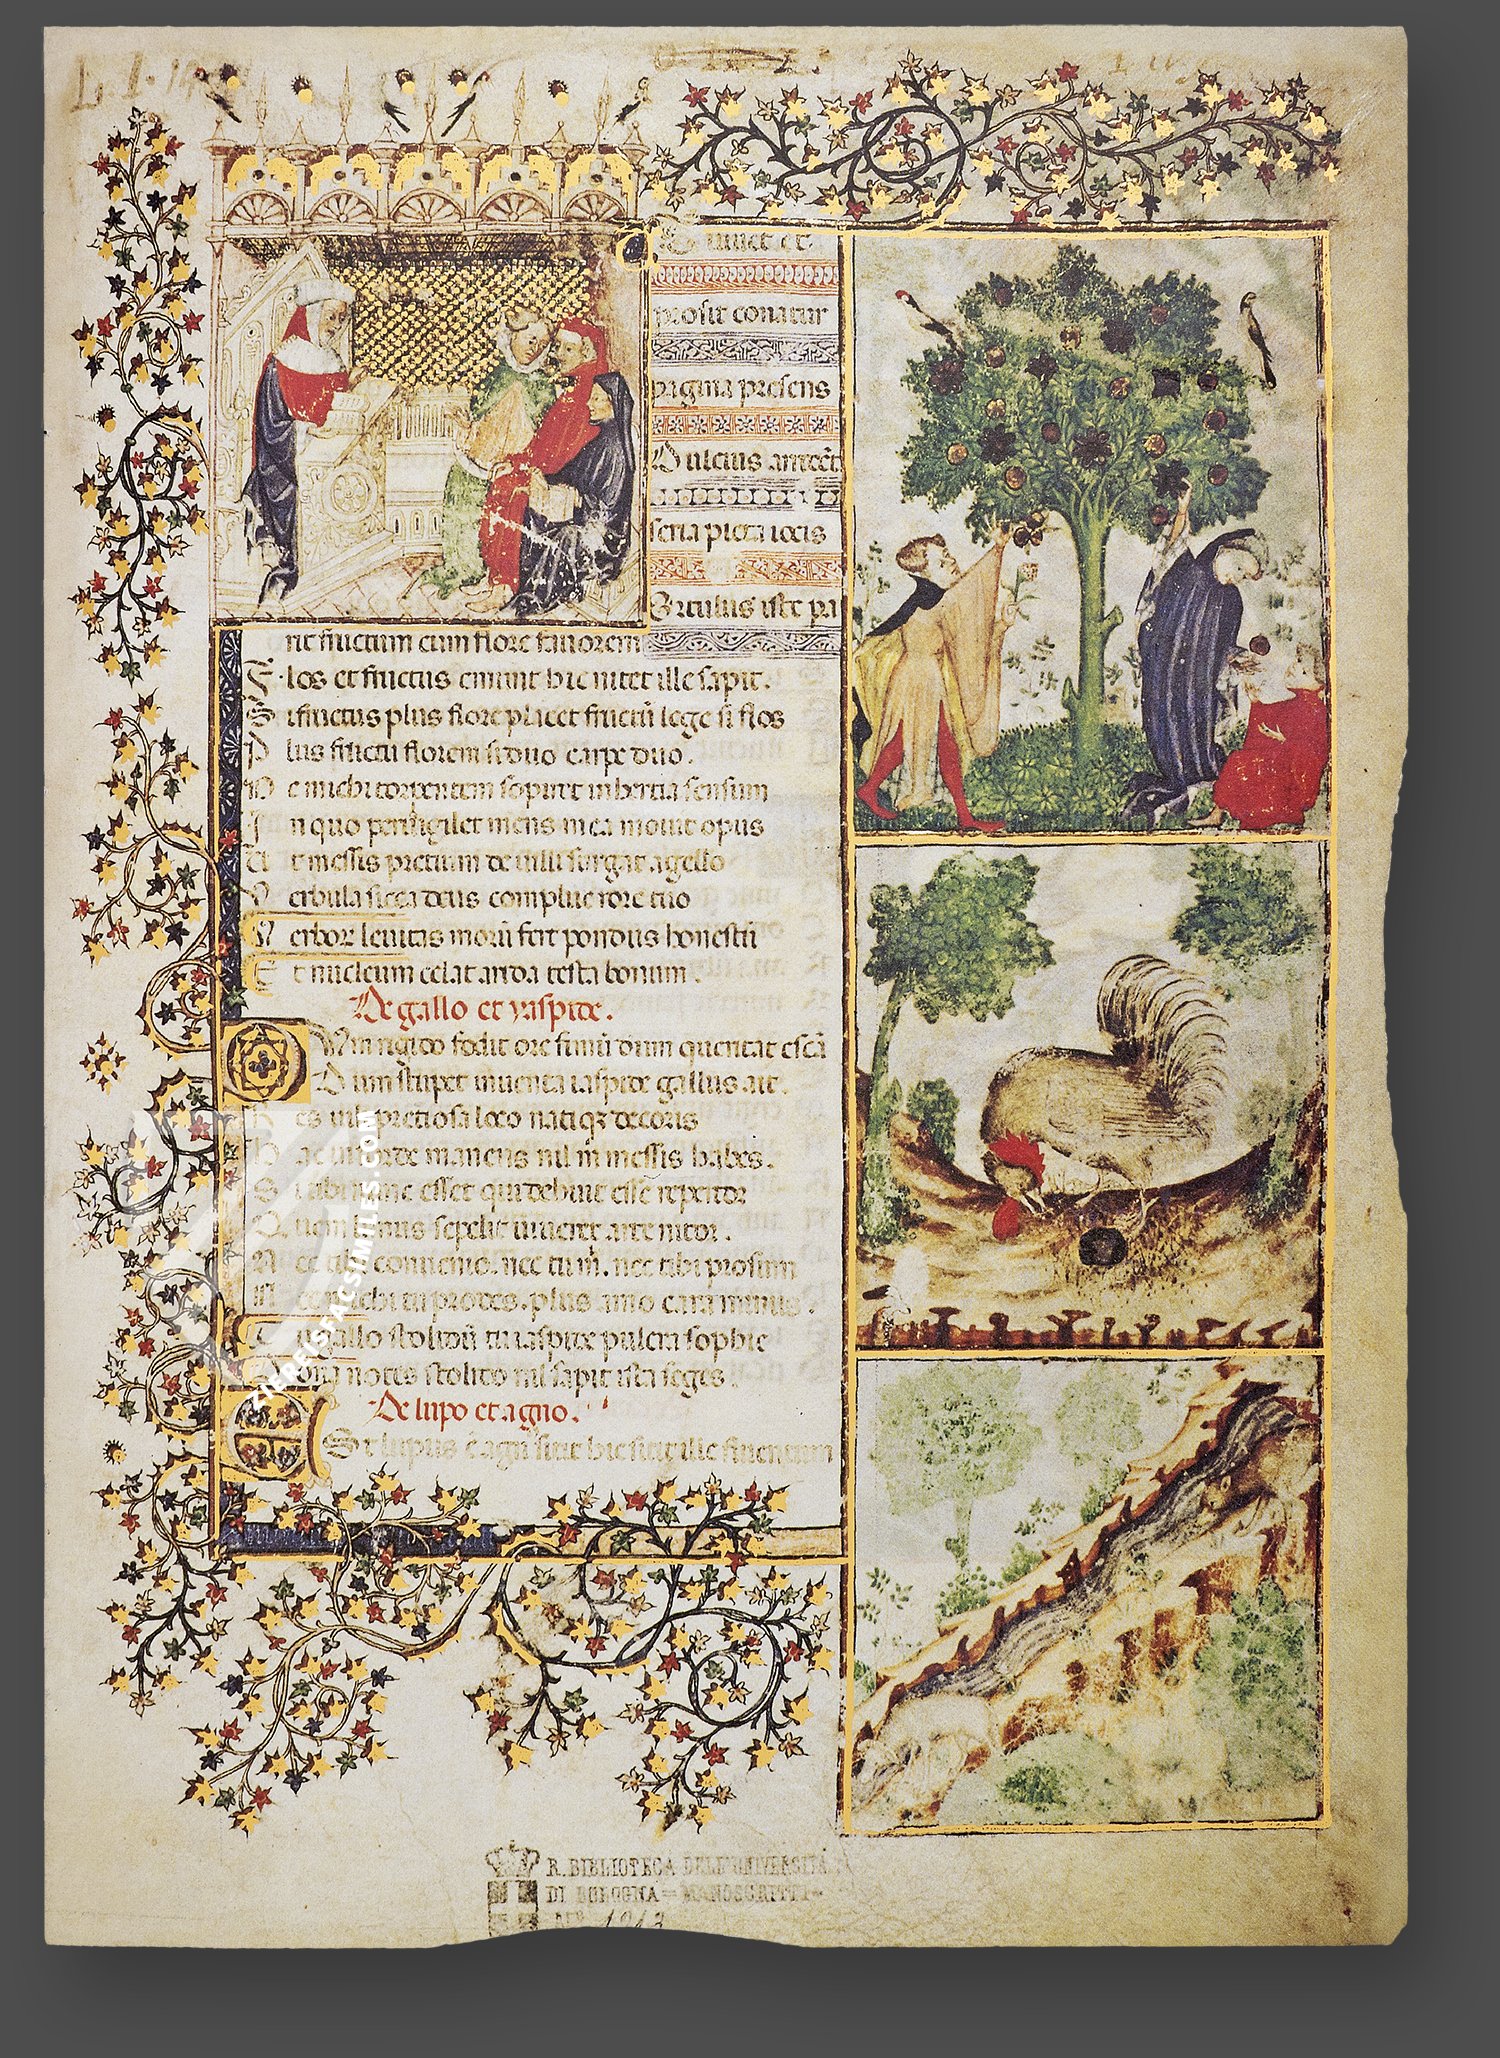 L. I. 14
U t iuvet et
prosit conatur
pagina presens
D ulcius arrident
seria picta iocis
O rtulus iste pa
rit fructum cum flore favorem
F los et fructus emunt hic nitet ille sapit.
S i fructus plus flore placet fructū lege si flos
P lus fructu florem si duo carpe duo.
N e michi torpentem sopiret inhertia sensum
I n quo pervigilet mens mea movit opus
U t messis pretium de vili surgat agello
V erbula sicca deus complue rore tuo
V erbor levitas morū fert pondus honestū
E t nucleum celat arida testa bonum.
De gallo et yaspide.
Dum rigido fodit ore fimū dum queritat escā
D um stupet inventa iaspide gallus ait.
R es vili pretiosa loco natiqz decoris
H ac in sorde manens nil in messis habes.
S i tibi nunc esset qui debuit esse repertor
Q uem fimus sepelit viveret arte nitor.
N ec tibi convenio. nec tu m. nec tibi prosum
N ec michi tu prodes. plus amo cara minus.
T u gallo stolidū tu iaspide pulcra sophie
D ona notes stolido nil sapit ista seges.
De lupo et agno.
E St lupus ē agn sitit hic sitit ille fluentum
ZIEREISFACSIMILES.COM
R. BIBLIOTECA DELL'UNIVERSITÀ
DI BOLOGNA = MANOSCRITTI
1213